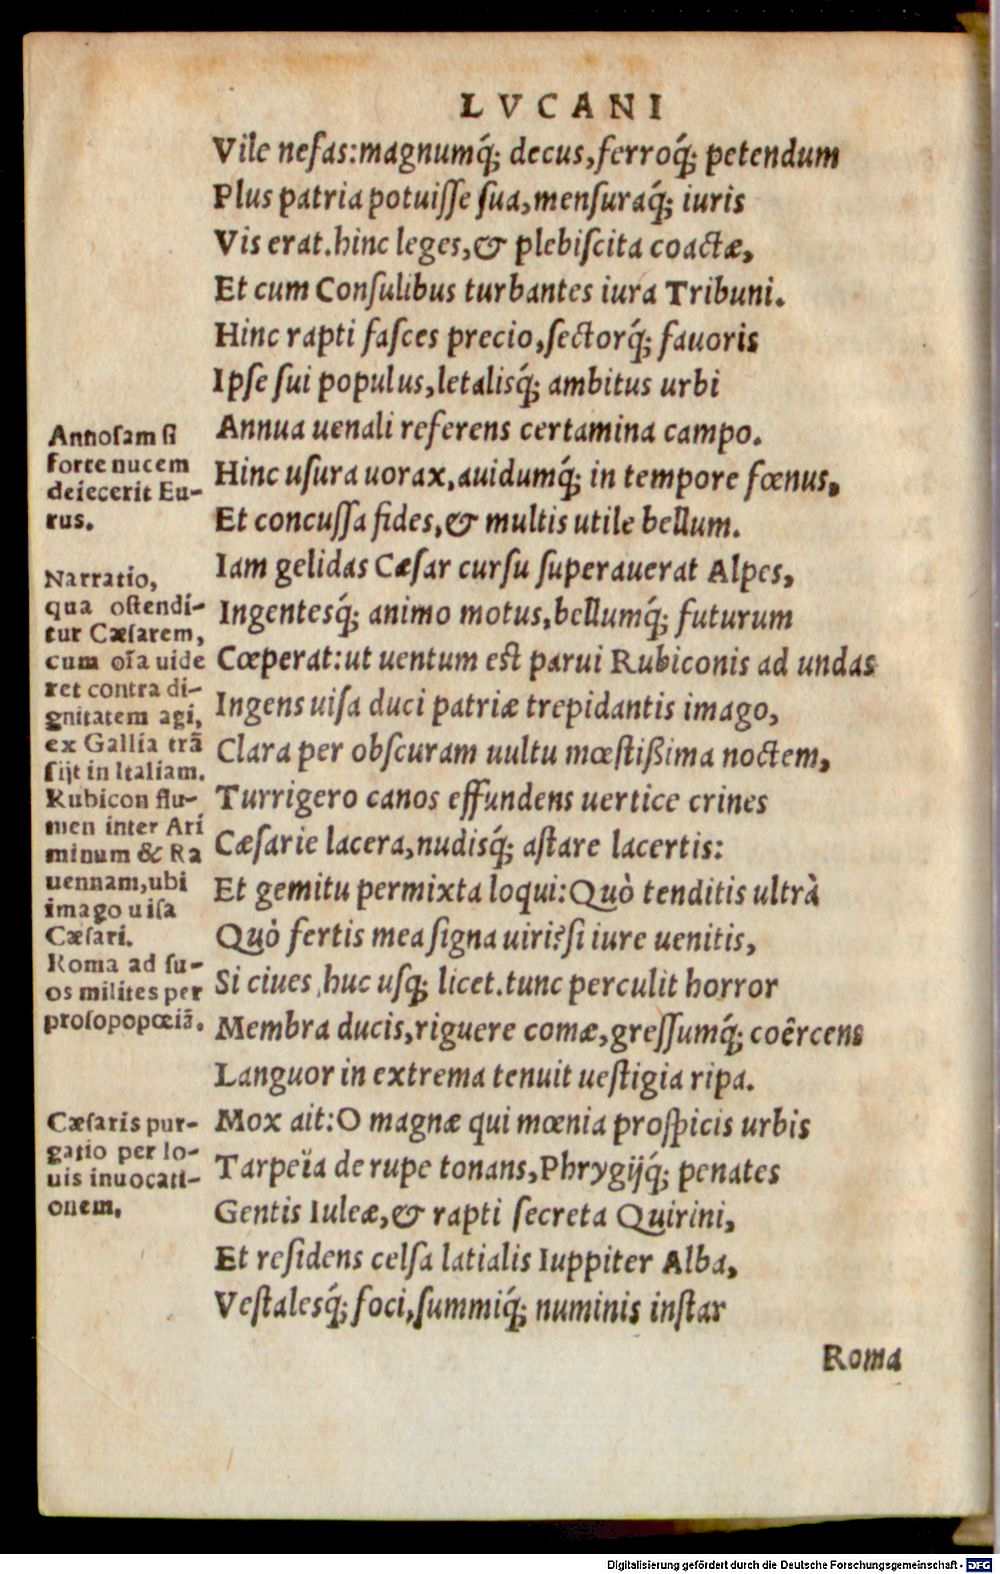 LVCANI
Vile nefas:magnumq́; decus,ferroq́; petendum
Plus patria potuiſſe ſua,menſuraq́; iuris
Vis erat.hinc leges,& plebiſcita coactæ,
Et cum Conſulibus turbantes iura Tribuni.
Hinc rapti faſces precio,ſectorq́; fauoris
Ipſe ſui populus,letalisq́; ambitus urbi
Annua uenali referens certamina campo.
Hinc uſura uorax,auidumq́; in tempore fœnus,
Et concuſſa fides,& multis utile bellum.
Iam gelidas Cæſar curſu ſuperauerat Alpes,
Ingentesq́; animo motus,bellumq́; futurum
Cœperat:ut uentum eſt parui Rubiconis ad undas
Ingens uiſa duci patriæ trepidantis imago,
Clara per obſcuram uultu mœſtißima noctem,
Turrigero canos effundens uertice crines
Cæſarie lacera,nudisq́; aſtare lacertis:
Et gemitu permixta loqui:Quò tenditis ultrà
Quò fertis mea ſigna uiri?ſi iure uenitis,
Si ciues,huc uſq; licet.tunc perculit horror
Membra ducis,riguere comæ,greſſumq́; coêrcens
Languor in extrema tenuit ueſtigia ripa.
Mox ait:O magnæ qui mœnia proſpicis urbis
Tarpeïa de rupe tonans,Phrygijq́; penates
Gentis Iuleæ,& rapti ſecreta Quirini,
Et reſidens celſa latialis Iuppiter Alba,
Veſtalesq́; foci,ſummiq́; numinis inſtar
Roma
Annoſam ſi
forte nucem
deiecerit Eu-
rus.
Narratio,
qua oſtendi-
tur Cæſarem,
cum oĩa uide
ret contra di-
gnitatem agi,
ex Gallia trã
ſijt in Italiam.
Rubicon flu-
men inter Ari
minum & Ra
uennam,ubi
imago uiſa
Cæſari.
Roma ad ſu-
os milites per
proſopopœiã.
Cæſaris pur-
gatio per Io-
uis inuocati-
onem.
Digitalisierung gefördert durch die Deutsche Forschungsgemeinschaft - DFG